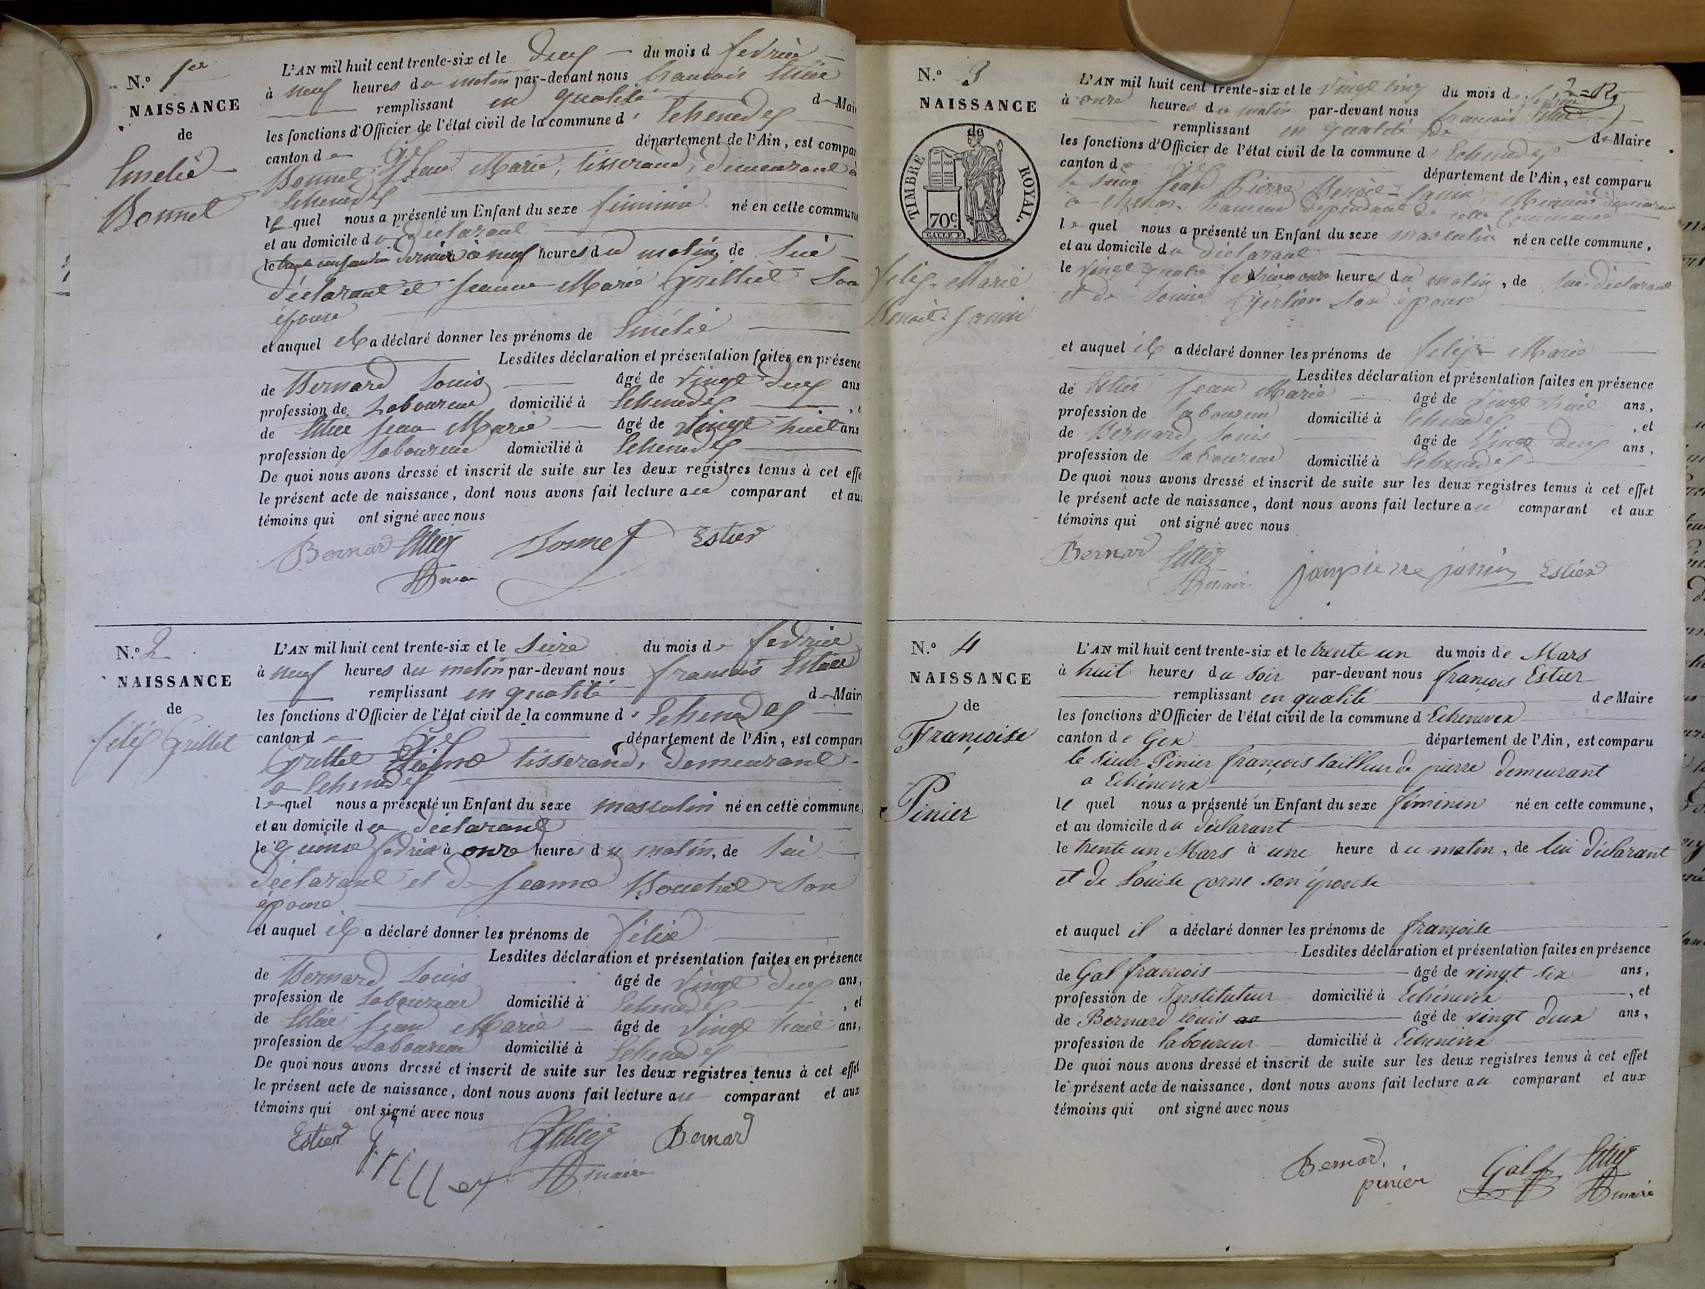 N.º 1er
NAISSANCE
de
Emélie
Bonnet
L'AN mil huit cent trente-six et le deux du mois d fevrier
à neuf heures du matin par-devant nous francois Estier
remplissant en qualité de Mair
les fonctions d'Officier de l'état civil de la commune d' Echenevex
canton de Gex département de l'Ain, est compar
Bonnet Marie, tisserand, demeurant à
Echenevex
le quel nous a présenté un Enfant du sexe féminin né en cette commune
et au domicile du déclarant
le dernier à neuf heures du matin, de lui
déclarant et Jeanne Marie Grillet son
épouse
et auquel il a déclaré donner les prénoms de Emélie
Lesdites déclaration et présentation faites en présenc
de Bernard Louis âgé de vingt deux ans
profession de Laboureur domicilié à Echenevex , e
de Estier Jean Marie âgé de vingt huit ans
profession de Laboureur domicilié à Echenevex
De quoi nous avons dressé et inscrit de suite sur les deux registres tenus à cet effe
le présent acte de naissance, dont nous avons fait lecture au comparant et au
témoins qui ont signé avec nous
Bernard Estier Bonnet Estier
maire
N.º 2
NAISSANCE
de
félix Grillet
L'AN mil huit cent trente-six et le seize du mois de fevrier
à neuf heures du matin par-devant nous francois Estier
remplissant en qualité de Mair
les fonctions d'Officier de l'état civil de la commune d' Echenevex
canton de Gex département de l'Ain, est compar
Grillet tisserand, demeurant
a Echenevex
le quel nous a présenté un Enfant du sexe masculin né en cette commune,
et au domicile du déclarant
le quinze fevrier à onze heures du matin, de lui
déclarant et de Jeanne Bouchet son
épouse
et auquel il a déclaré donner les prénoms de félix
Lesdites déclaration et présentation faites en présence
de Bernard Louis âgé de vingt deux ans,
profession de Laboureur domicilié à Echenevex , et
de Estier Jean Marie âgé de vingt huit ans,
profession de Laboureur domicilié à Echenevex
De quoi nous avons dressé et inscrit de suite sur les deux registres tenus à cet effet
le présent acte de naissance, dont nous avons fait lecture au comparant et aux
témoins qui ont signé avec nous
Estier Grillet Estier Bernard
maire
N.º 3
NAISSANCE
de
TIMBRE ROYAL.
70c
félix Marie
Benoit Janin
L'AN mil huit cent trente-six et le vingt cinq du mois de fevrier
à onze heures du matin par-devant nous francois Estier
remplissant en qualité de de Maire
les fonctions d'Officier de l'état civil de la commune d' Echenevex
canton de département de l'Ain, est comparu
le sieur Jean Pierre Benoit Janin,
a hameau dépendant de cette Commune
le quel nous a présenté un Enfant du sexe masculin né en cette commune,
et au domicile du déclarant
le vingt quatre fevrier à onze heures du matin, de lui déclarant
et de son épouse
et auquel il a déclaré donner les prénoms de félix Marie
Lesdites déclaration et présentation faites en présence
de Estier Jean Marie âgé de vingt huit ans,
profession de Laboureur domicilié à Echenevex , et
de Bernard Louis âgé de vingt deux ans,
profession de Laboureur domicilié à Echenevex
De quoi nous avons dressé et inscrit de suite sur les deux registres tenus à cet effet
le présent acte de naissance, dont nous avons fait lecture au comparant et aux
témoins qui ont signé avec nous
Bernard Estier janpierre janin Estier
maire
N.º 4
NAISSANCE
de
Françoise
Pinier
L'AN mil huit cent trente-six et le trente un du mois de Mars
à huit heures du soir par-devant nous françois Estier
remplissant en qualité de Maire
les fonctions d'Officier de l'état civil de la commune d Echenevex
canton de Gex département de l'Ain, est comparu
le sieur Pinier françois tailleur de pierre demeurant
a Echénevex
le quel nous a présenté un Enfant du sexe féminin né en cette commune,
et au domicile du déclarant
le trente un Mars à une heure du matin, de lui déclarant
et de Louise corne son épouse
et auquel il a déclaré donner les prénoms de françoise
Lesdites déclaration et présentation faites en présence
de Gal francois âgé de vingt six ans,
profession de Instituteur domicilié à Echénevex , et
de Bernard louis âgé de vingt deux ans,
profession de laboureur domicilié à Echenevex
De quoi nous avons dressé et inscrit de suite sur les deux registres tenus à cet effet
le présent acte de naissance, dont nous avons fait lecture au comparant et aux
témoins qui ont signé avec nous
Bernard Gal f Estier
pinier maire